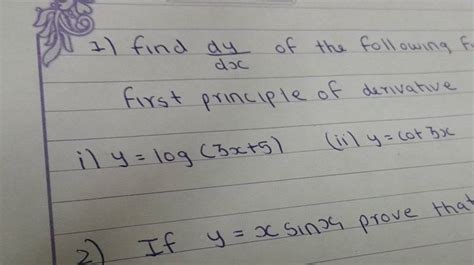 1) find dy/dx of the following
first principle of derivative
i) y = log (3x+5) (ii) y = cot 3x
2) If y = x sinx, prove that